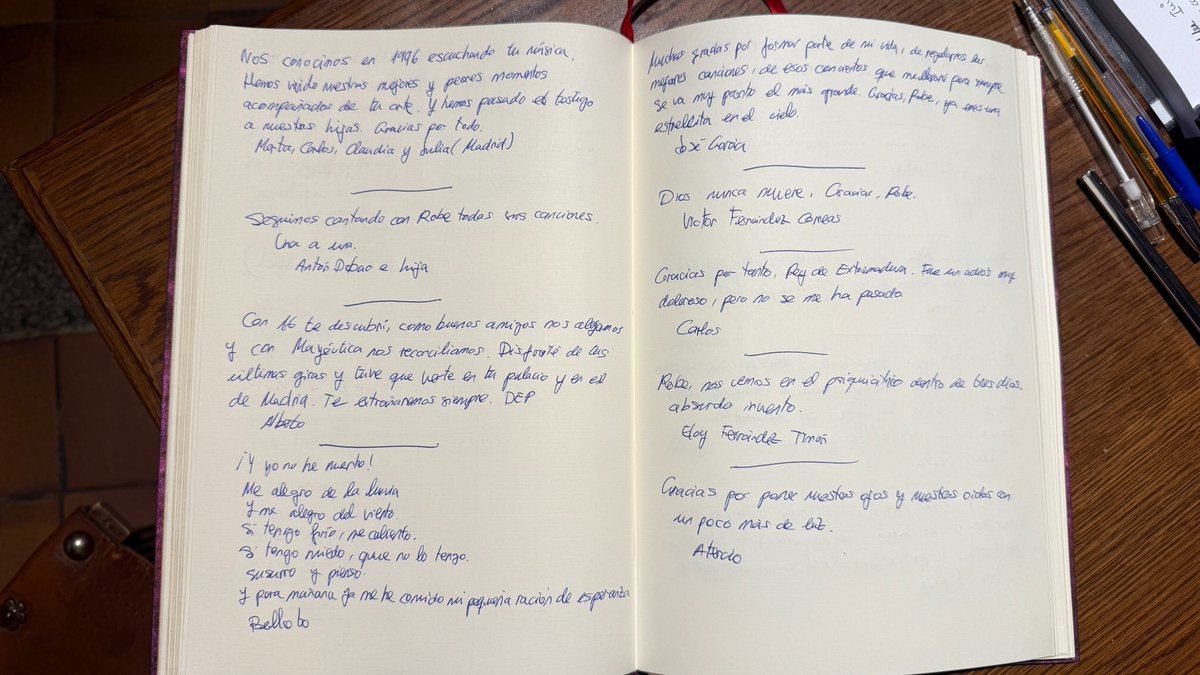 Nos conocimos en 1996 escuchando tu música.
Hemos vivido nuestros mejores y peores momentos
acompañados de tu arte. Y hemos pasado el testigo
a nuestras hijas. Gracias por todo.
Marta, Carlos, Claudia y Julia (Madrid)
Seguimos cantando con Robe todas sus canciones.
Una a una.
Antón Dobao e hija
Con 16 te descubrí, como buenos amigos nos alejamos
y con Mayéutica nos reconciliamos. Disfruté de tus
últimas giras y tuve que verte en tu palacio y en el
de Madrid. Te extrañaremos siempre. DEP
Alberto
¡Y yo no he muerto!
Me alegro de la lluvia
Y me alegro del viento.
Si tengo frío, me caliento.
Si tengo miedo, que no lo tengo.
susurro y pienso.
Y para mañana ya me he comido mi pequeña ración de esperanza
Belloto
Muchas gracias por formar parte de mi vida, de regalarnos las
mejores canciones, de esos conciertos que me llevaré para siempre.
Se va muy pronto el más grande. Gracias, Robe, ya eres una
estrellita en el cielo.
José García
Dios nunca muere. Gracias, Robe.
Víctor Fernández Correas
Gracias por tanto, Rey de Extremadura. Fue un adiós muy
doloroso, pero no se me ha pasado
Carlos
Robe, nos vemos en el psiquiátrico dentro de tres días.
absurdo invento.
Eloy Fernández
Gracias por poner nuestros ojos y nuestros oídos con
un poco más de luz.